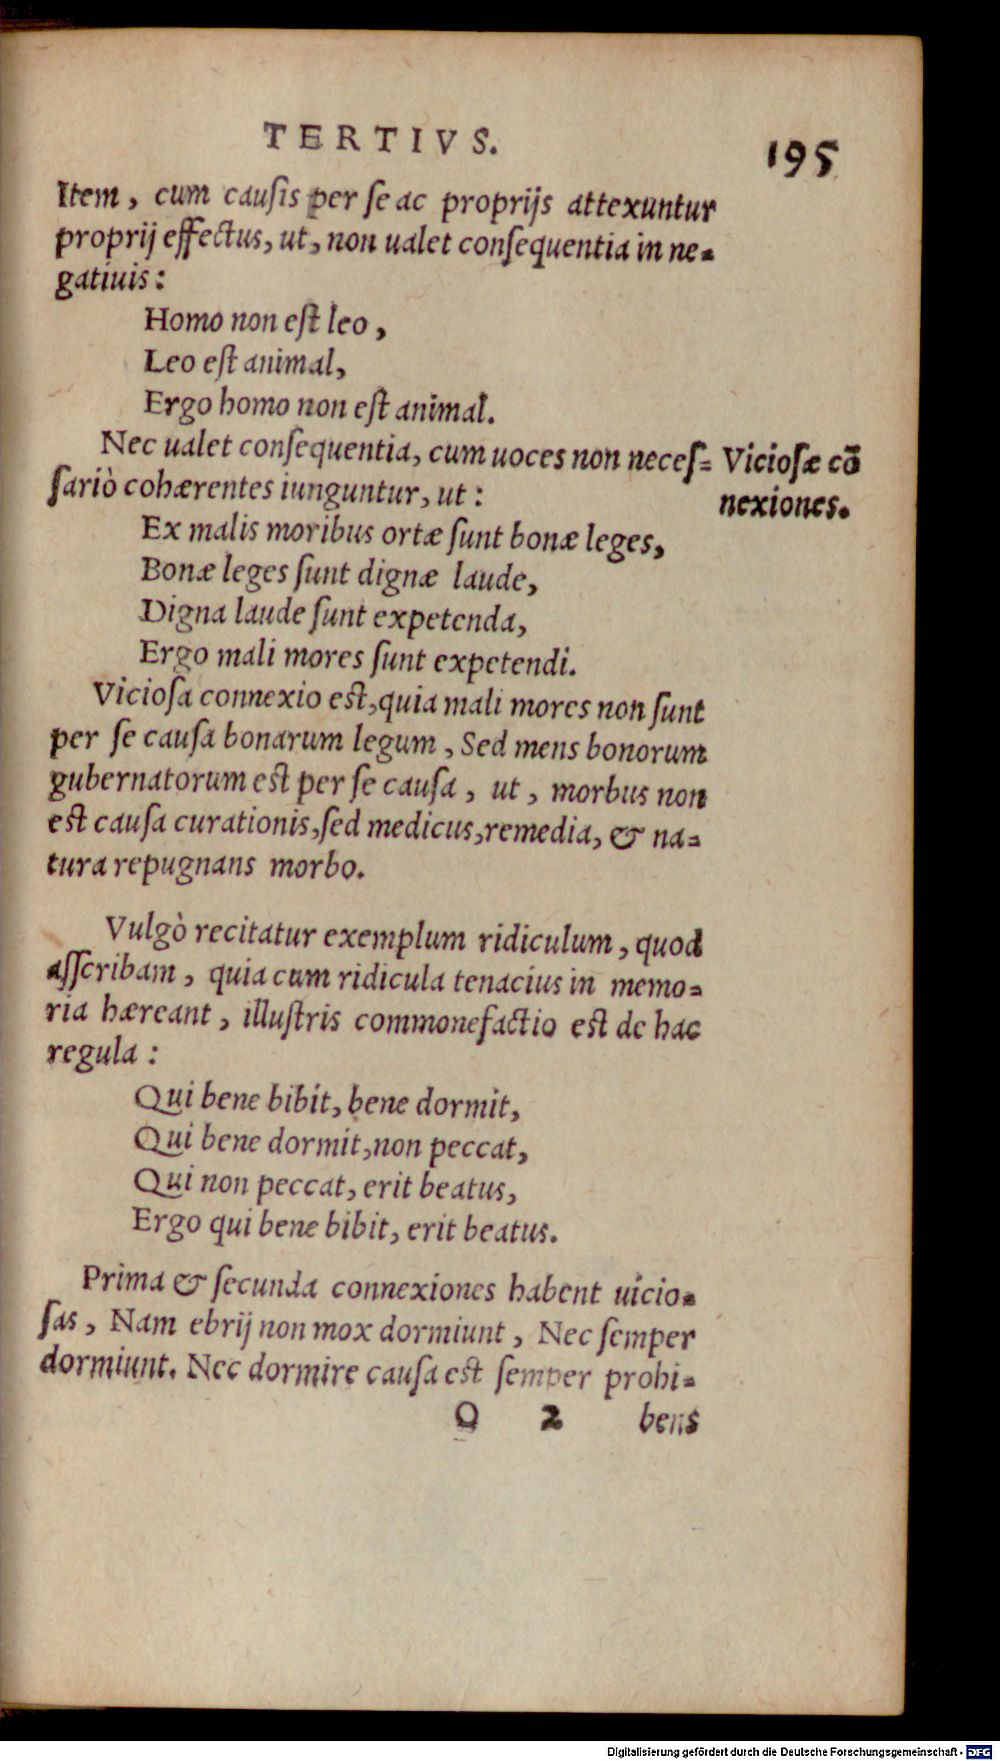 TERTIVS.
195
Item, cum causis per se ac proprijs attexuntur
proprij effectus, ut, non ualet consequentia in ne-
gatiuis:
Homo non est leo,
Leo est animal,
Ergo homo non est animal.
Nec ualet consequentia, cum uoces non neces-
Viciosæ cō
sariò cohærentes iunguntur, ut:
nexiones.
Ex malis moribus ortæ sunt bonæ leges,
Bonæ leges sunt dignæ laude,
Digna laude sunt expetenda,
Ergo mali mores sunt expetendi.
Viciosa connexio est, quia mali mores non sunt
per se causa bonarum legum, Sed mens bonorum
gubernatorum est per se causa, ut, morbus non
est causa curationis, sed medicus, remedia, & na-
tura repugnans morbo.
Vulgò recitatur exemplum ridiculum, quod
asscribam, quia cum ridicula tenacius in memo-
ria hæreant, illustris commonefactio est de hac
regula:
Qui bene bibit, bene dormit,
Qui bene dormit, non peccat,
Qui non peccat, erit beatus,
Ergo qui bene bibit, erit beatus.
Prima & secunda connexiones habent uicio-
sas, Nam ebrij non mox dormiunt, Nec semper
dormiunt. Nec dormire causa est semper prohi-
O 2 bens
Digitalisierung gefördert durch die Deutsche Forschungsgemeinschaft - DFG